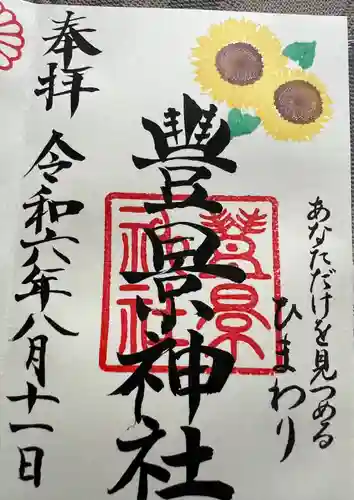 あなただけを見つめる
ひまわり
豊景神社
奉拝
令和六年八月十一日